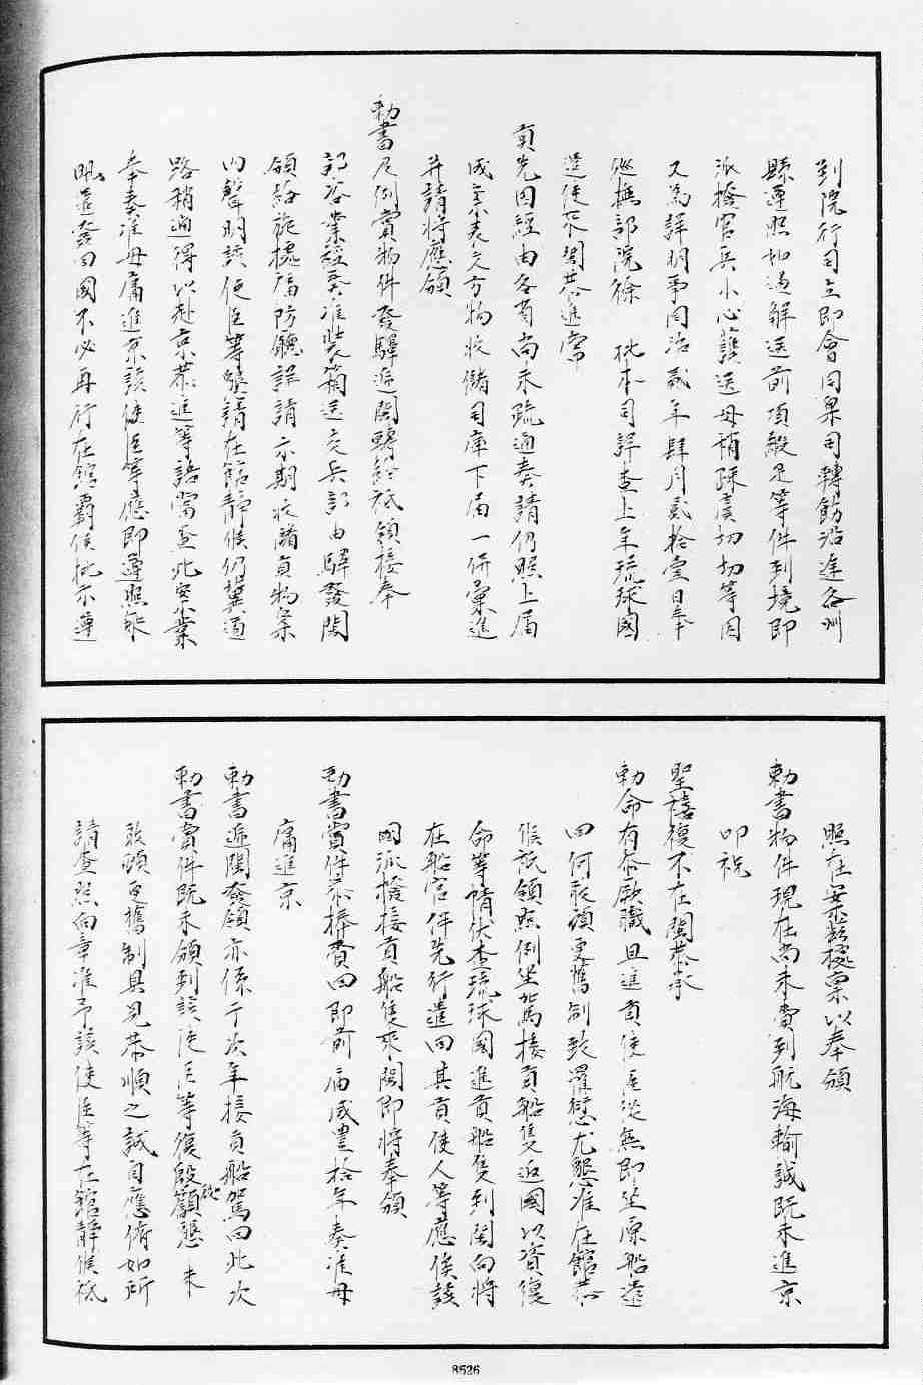 到院行司立即會同臬司轉飭沿途各州
縣遵照如遇解送前項緞疋等件到境即
派撥官兵小心護送毋稍疎虞切切等因
又為詳明事同治貳年肆月貳拾壹日奉
巡撫部院徐 批本司詳查上年琉球國
遣使 恭進常
貢先因經由各省尚未疏通奏請仍照上屆
成案表文方物收儲司庫下屆一併彙進
并請將應領
勅書及例賞物件發驛遞閩轉給祗領接奉
部咨業經奏准裝箱送交兵部由驛發閩
領給旋據福防廳詳請示期收儲貢物案
內聲明該使臣等懇請在館靜候仍冀道
路稍通得以赴京恭進等語當查此案業
奉奏准毋庸進京該使臣等應即遵照
遣發回國不必再行在館覊候批示遵
照在案茲據稟以奉頒
勅書物件現在尚未賫到航海輸誠既未進京
叩祝
聖禧復不在閩恭承
勅命有忝厥職且進貢使臣從無即坐原船遄
回何敢頓更舊制致罹愆尤懇准在館恭
候祗領照例坐駕接貢船隻返國以資復
命等情伏查琉球國進貢船隻到閩向將
在船官伴先行遣回其貢使人等應俟該
國派撥接貢船隻來閩即將奉頒
勅書賞件恭捧賫回即前屆咸豐拾年奏准毋
庸進京
勅書遞閩發領亦係于次年接貢船駕回此次
勅書賞件既未頒到該使臣等復殷殷籲懇 未
敢頓更舊制具見恭順之誠自應俯如所
請查照向章准予該使臣等在館靜候祗
8526